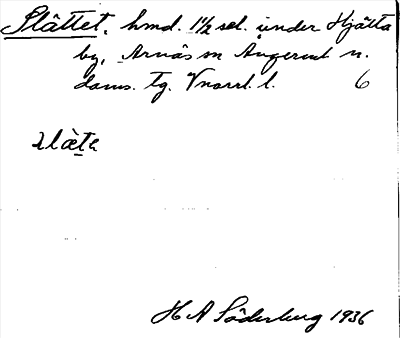 Slåttet, hmd. 1½ sel. under Hjälta
by, Arnäs sn Ångerml. n.
doms. tg. Vnorrl. l. 6
slàt̠e
H A Söderberg 1936